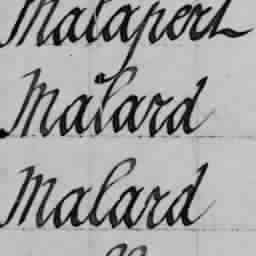 Malapert
Malard
Malard